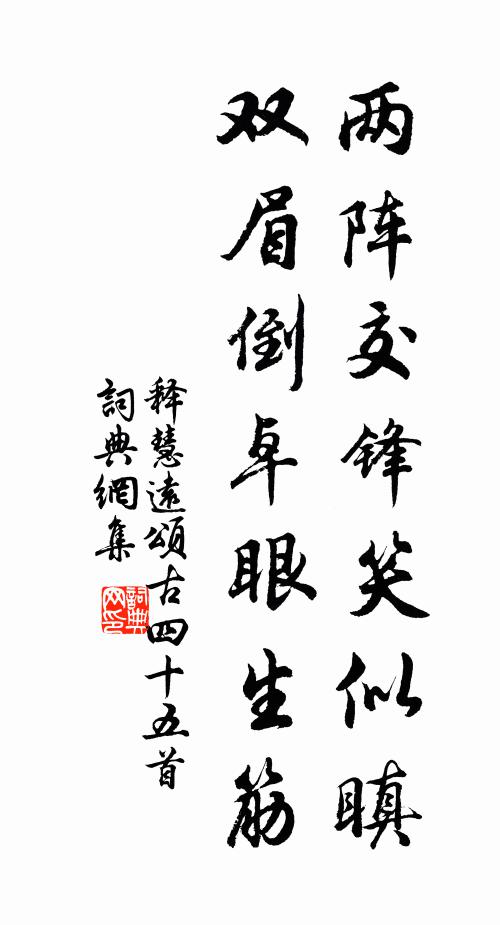 两阵交锋笑似瞋
双眉倒卓眼生筋
释慧遠頌古四十五首
詞典網集
詞典
网印